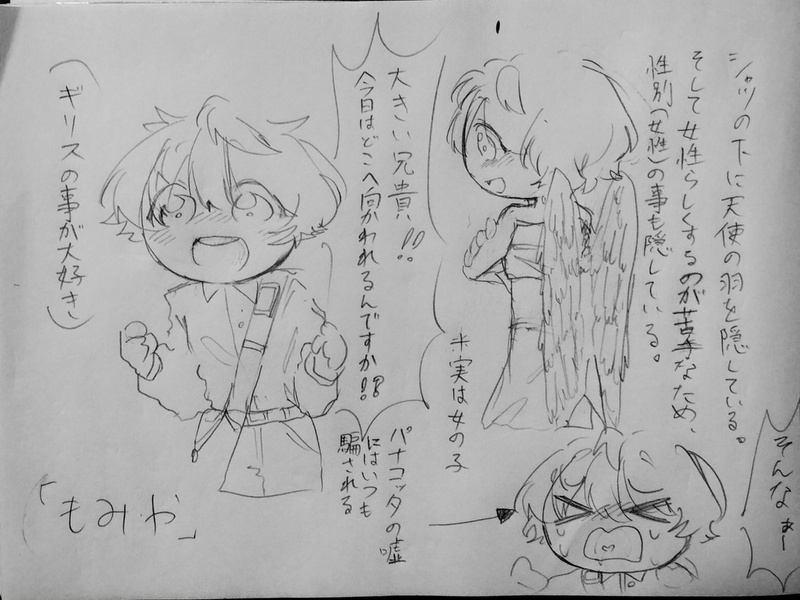 シャツの下に天使の羽を隠している。
そして女性らしくするのが苦手なため、
性別(女性)の事も隠している。
大きい兄貴!!
今日はどこへ向かわれるんですか!!?
(ギリスの事が大好き)
※実は女の子
パナコッタの嘘
にはいつも
騙される
そんなぁー
「もみや」